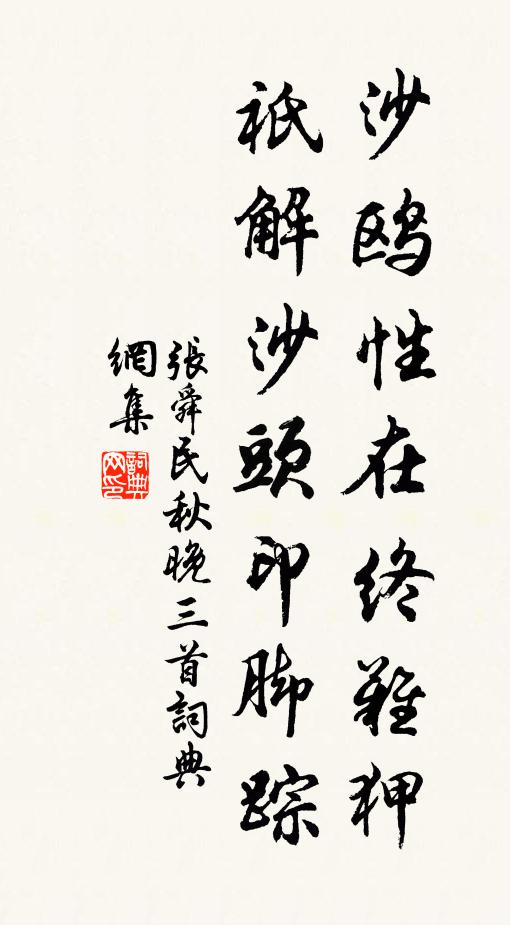 沙鸥性在终難狎
衹解沙頭印脚踪
張舜民秋晚三首詞典
網集
詞典
网印